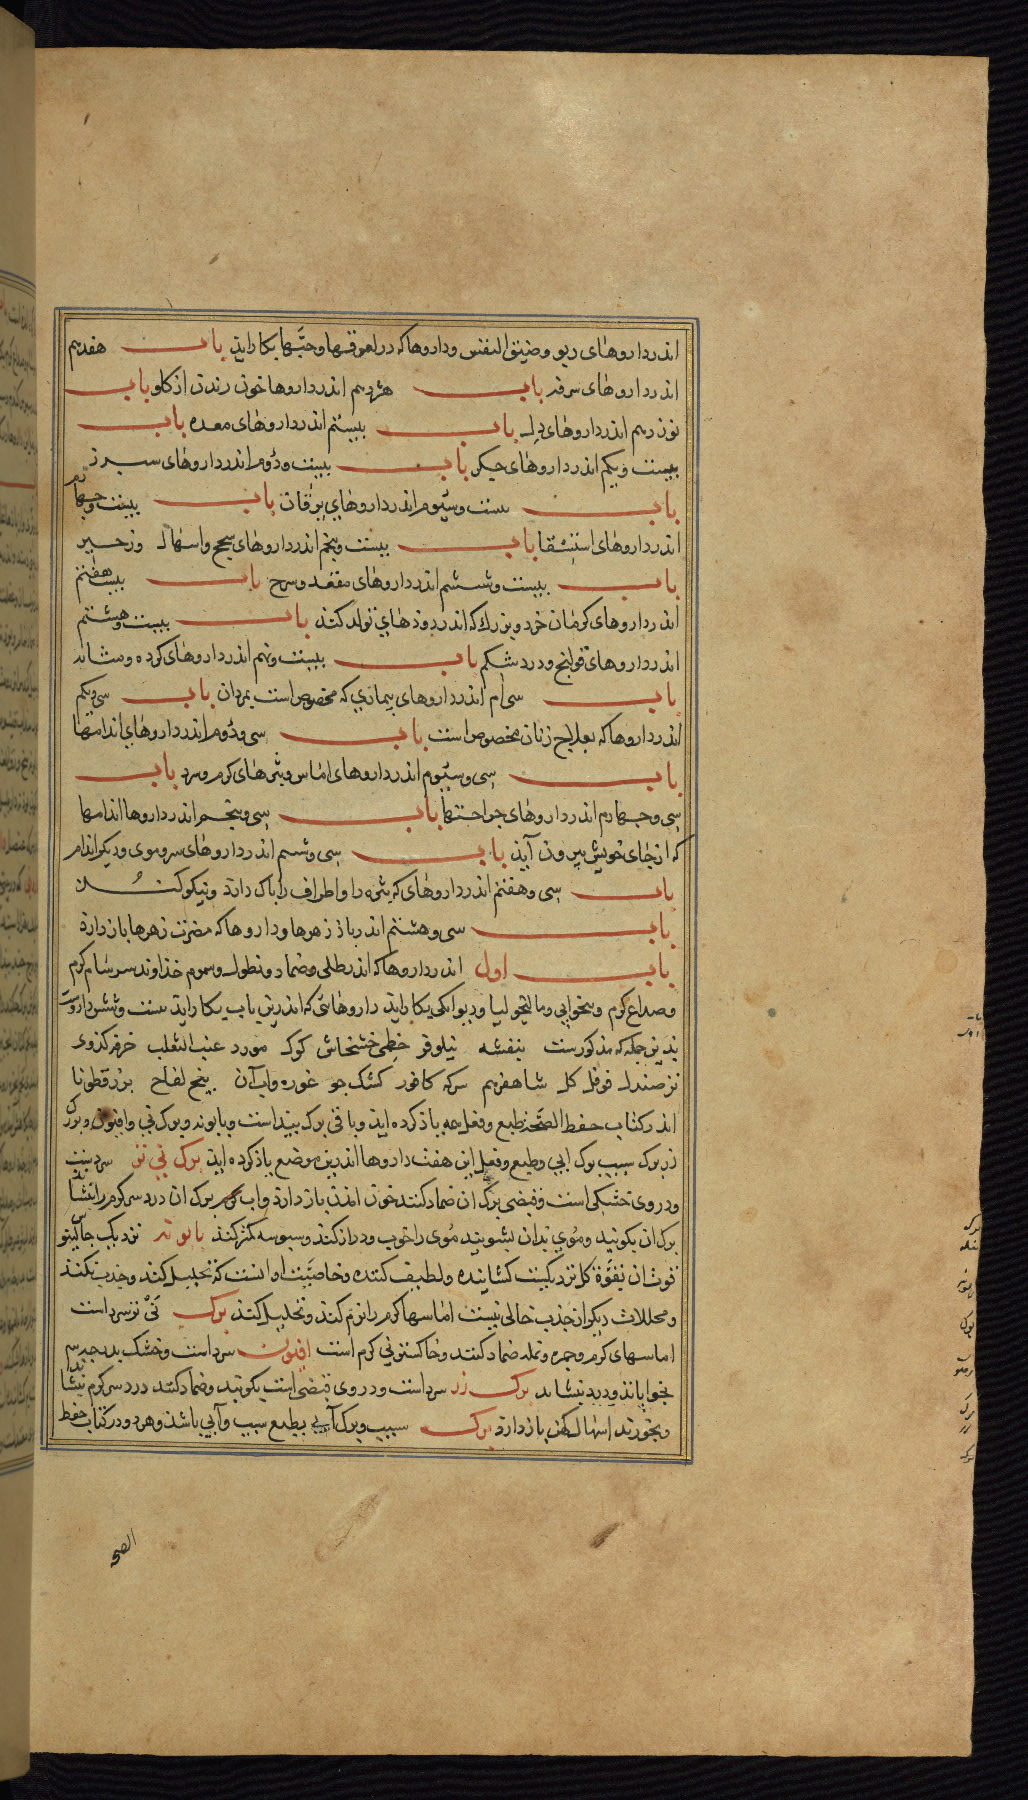 اندر داروهای ربو و ضیق النفس و داروها که در لعوقها و حبّها بکار آید باب هفدهم
اندر داروهای سرفه باب هژدهم اندر داروها خون رفتن از کلو باب
نوزدهم اندر داروهای دل باب بیستم اندر داروهای معده باب
بیست و یکم اندر داروهای جکر باب بیست و دُوم اندر داروهای سپرز
باب بیست و سیُوم اندر داروهای یرقان باب بیست و چهارم
اندر داروهای استسقا باب بیست و پنجم اندر داروهای سحج و اسهال و زحیر
باب بیست و ششم اندر داروهای مقعد و باب بیست هفتم
اندر داروهای کرمان خرد و بزرک که اندر روذهای تولد کند باب بیست و هشتم
اندر داروهای قولنج و درد شکم باب بیست و نهم اندر داروهای کرده و مثانه
باب سی ام اندر داروهای بیماری که مخصوص است بمردان باب سی و یکم
اندر داروها که بعلاج زنان مخصوص است باب سی و دُوم اندر داروهای اندامها
باب سی و سیُوم اندر داروهای اماس و بثرهای کرم و سرد باب
سی و چهارم اندر داروهای جراحتها باب سی و پنجم اندر داروها اندامها
که از جای خویش بیرون آید باب سی و ششم اندر داروهای سر و موی و دیکر اندام
باب سی و هفتم اندر داروهای که بشره را و اطراف را پاک دارد و نیکو کند
باب سی و هشتم اندر باذ زهرها و داروها که مضرت زهرها بازدارد
باب اول اندر داروها که اندر طلی و ضماد و نطول و شموم خذاوند سرسام کرم
و صداع کرم و بیخوابی و مالیخولیا و دیوانکی بکار آید داروهائی که اندرین باب بکار آید بیست و شش داروست
بدین جمله که مذکورست بنفشه نیلوفر خطمی خشخاش کوک مورد عنب الثعلب خرفه کذوی
تر صندل فوفل کل شاهفرم سرکه کافور کشک جو غوره و آب آن بیخ لفاح بزر قطونا
اندر کتاب حفظ الصّحه طبع و فعل همه یاذ کرده اید و باقی برک بیداست و بابونه و برک نی و افیون و برک
زر برک سیب برک ابی و طبع و فعل این هفت داروها اندرین موضع یاذ کرده اید برک نی تر سردست
و در وی خشکی است و قبضی برک ان ضماد کنند خون امدن بازدارد و اب برک ان درد سر کرم را بنشاند
برک ان بکوبند و موی بدان بشویند مُوی را خوب و دراز کند و سبوسه کمتر کند بابونه نزدیک جالینوس
قوت ان بقوّة کل نزدیکست کشاینده و لطیف کننده و خاصیّت او انست که تحلیل کند و جذب نکند
و محللات دیکر از جذب خالی نیست اماسها کرم را نرم کند و تحلیل کند برک نَی تر سرد است
اماسهای کرم و جمره و نمله ضماد کنند و خاکستر نی کرم است افیون سرد است و خشک بدرجه سیم
بخواباند و درد بنشاند برک زر سرد است و در وی قبضی است بکوبند و ضماد کنند درد سر کرم بنشاند
و بخورند اسهال کهن بازدارد برک سیب و برک آبی بطبع سیب و آبی باشذ و هر دو در کتاب حفظ
الصحه